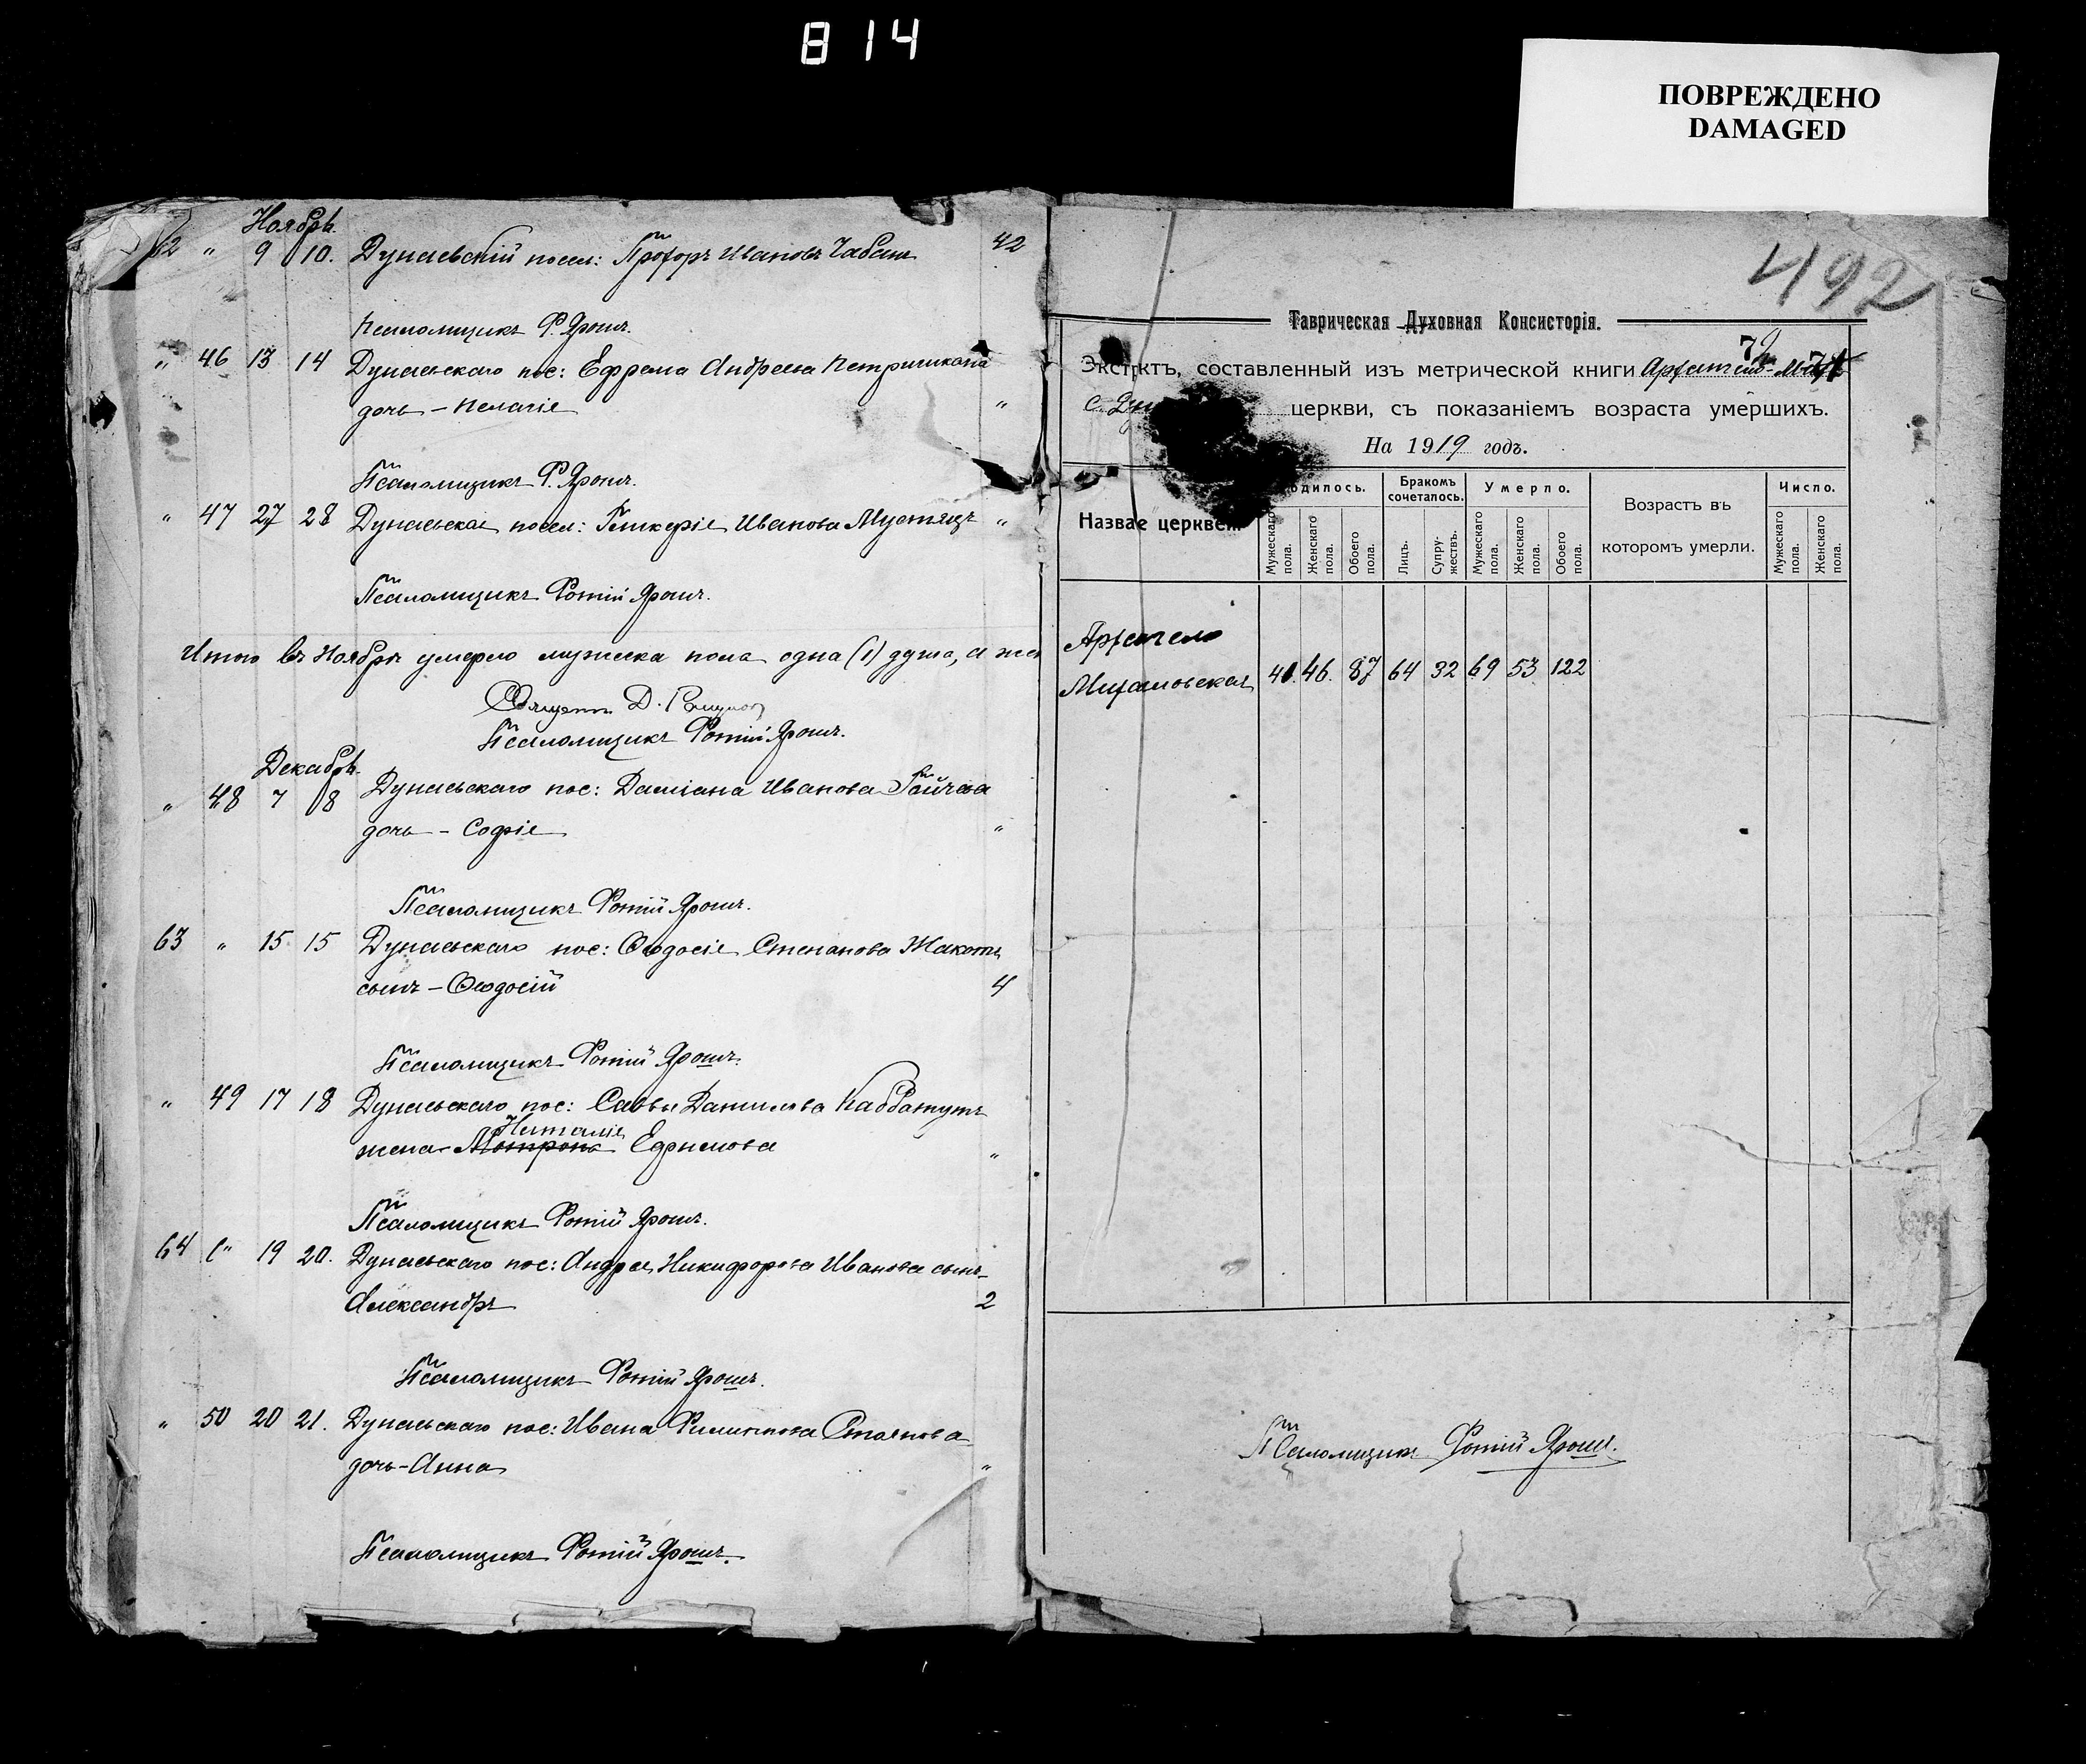 814
ПОВРЕЖДЕНО
DAMAGED
Ноябрь.
62 " 9 10. Дунаевскій посел: Прохоръ Ивановъ Чабан 42
Псаломщикъ Ф. Ярошъ.
" 46 13 14 Дунаевскаго пос: Ефрема Андреева
дочь – Пелагія "
Псаломщикъ Ф. Ярошъ.
" 47 27 28 Дунаевская посел: Гликерія Иванова "
Псаломщикъ Фотій Ярошъ.
Итого въ Ноябрѣ умерло мужска пола одна (1) душа, а жен
Священ. Д.
Псаломщикъ Фотій Ярошъ.
Декабрь.
" 48 7 8 Дунаевскаго пос: Даміана Иванова Гайчева
дочь – Софія "
Псаломщикъ Фотій Ярошъ.
63 " 15 15 Дунаевскаго пос: Ѳеодосія Степанова
сынъ – Ѳеодосій 4
Псаломщикъ Фотій Ярошъ.
" 49 17 18 Дунаевскаго пос: Саввы Данилова
Наталія
жена Матрона Ефимова "
Псаломщикъ Фотій Ярошъ.
64 " 19 20. Дунаевскаго пос: Андрея Никифорова Иванова сынъ–
Александръ 2
Псаломщикъ Фотій Ярошъ.
" 50 20 21. Дунаевскаго пос: Ивана Филиппова Стоянова
дочь – Анна "
Псаломщикъ Фотій Ярошъ.
492
Таврическая Духовная Консисторія.
Экстрктъ, составленный изъ метрической книги Архангело-Мих
с. Дун церкви, съ показаніемъ возраста умершихъ.
На 1919 годъ.
Назвае церквей.
одилось.
Бракомъ сочеталось.
Умерло.
Возрастъ въ которомъ умерли.
Число.
Мужескаго пола.
Женскаго пола.
Обоего пола.
Лицъ.
Супру-жествъ.
Мужескаго пола.
Женскаго пола.
Обоего пола.
Мужескаго пола.
Женскаго пола.
Архангело
Михайловская 41. 46. 87 64 32 69 53 122
Псаломщикъ Фотій Ярошъ.